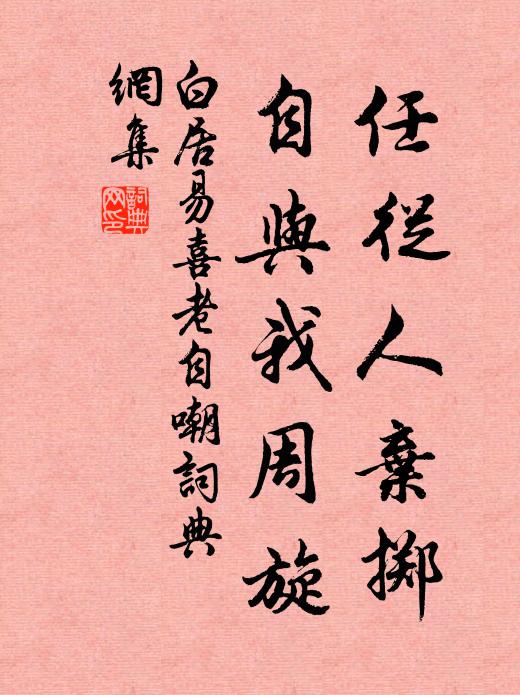 任從人棄擲
自與我周旋
白居易喜老自嘲詞典
網集
詞典
网印